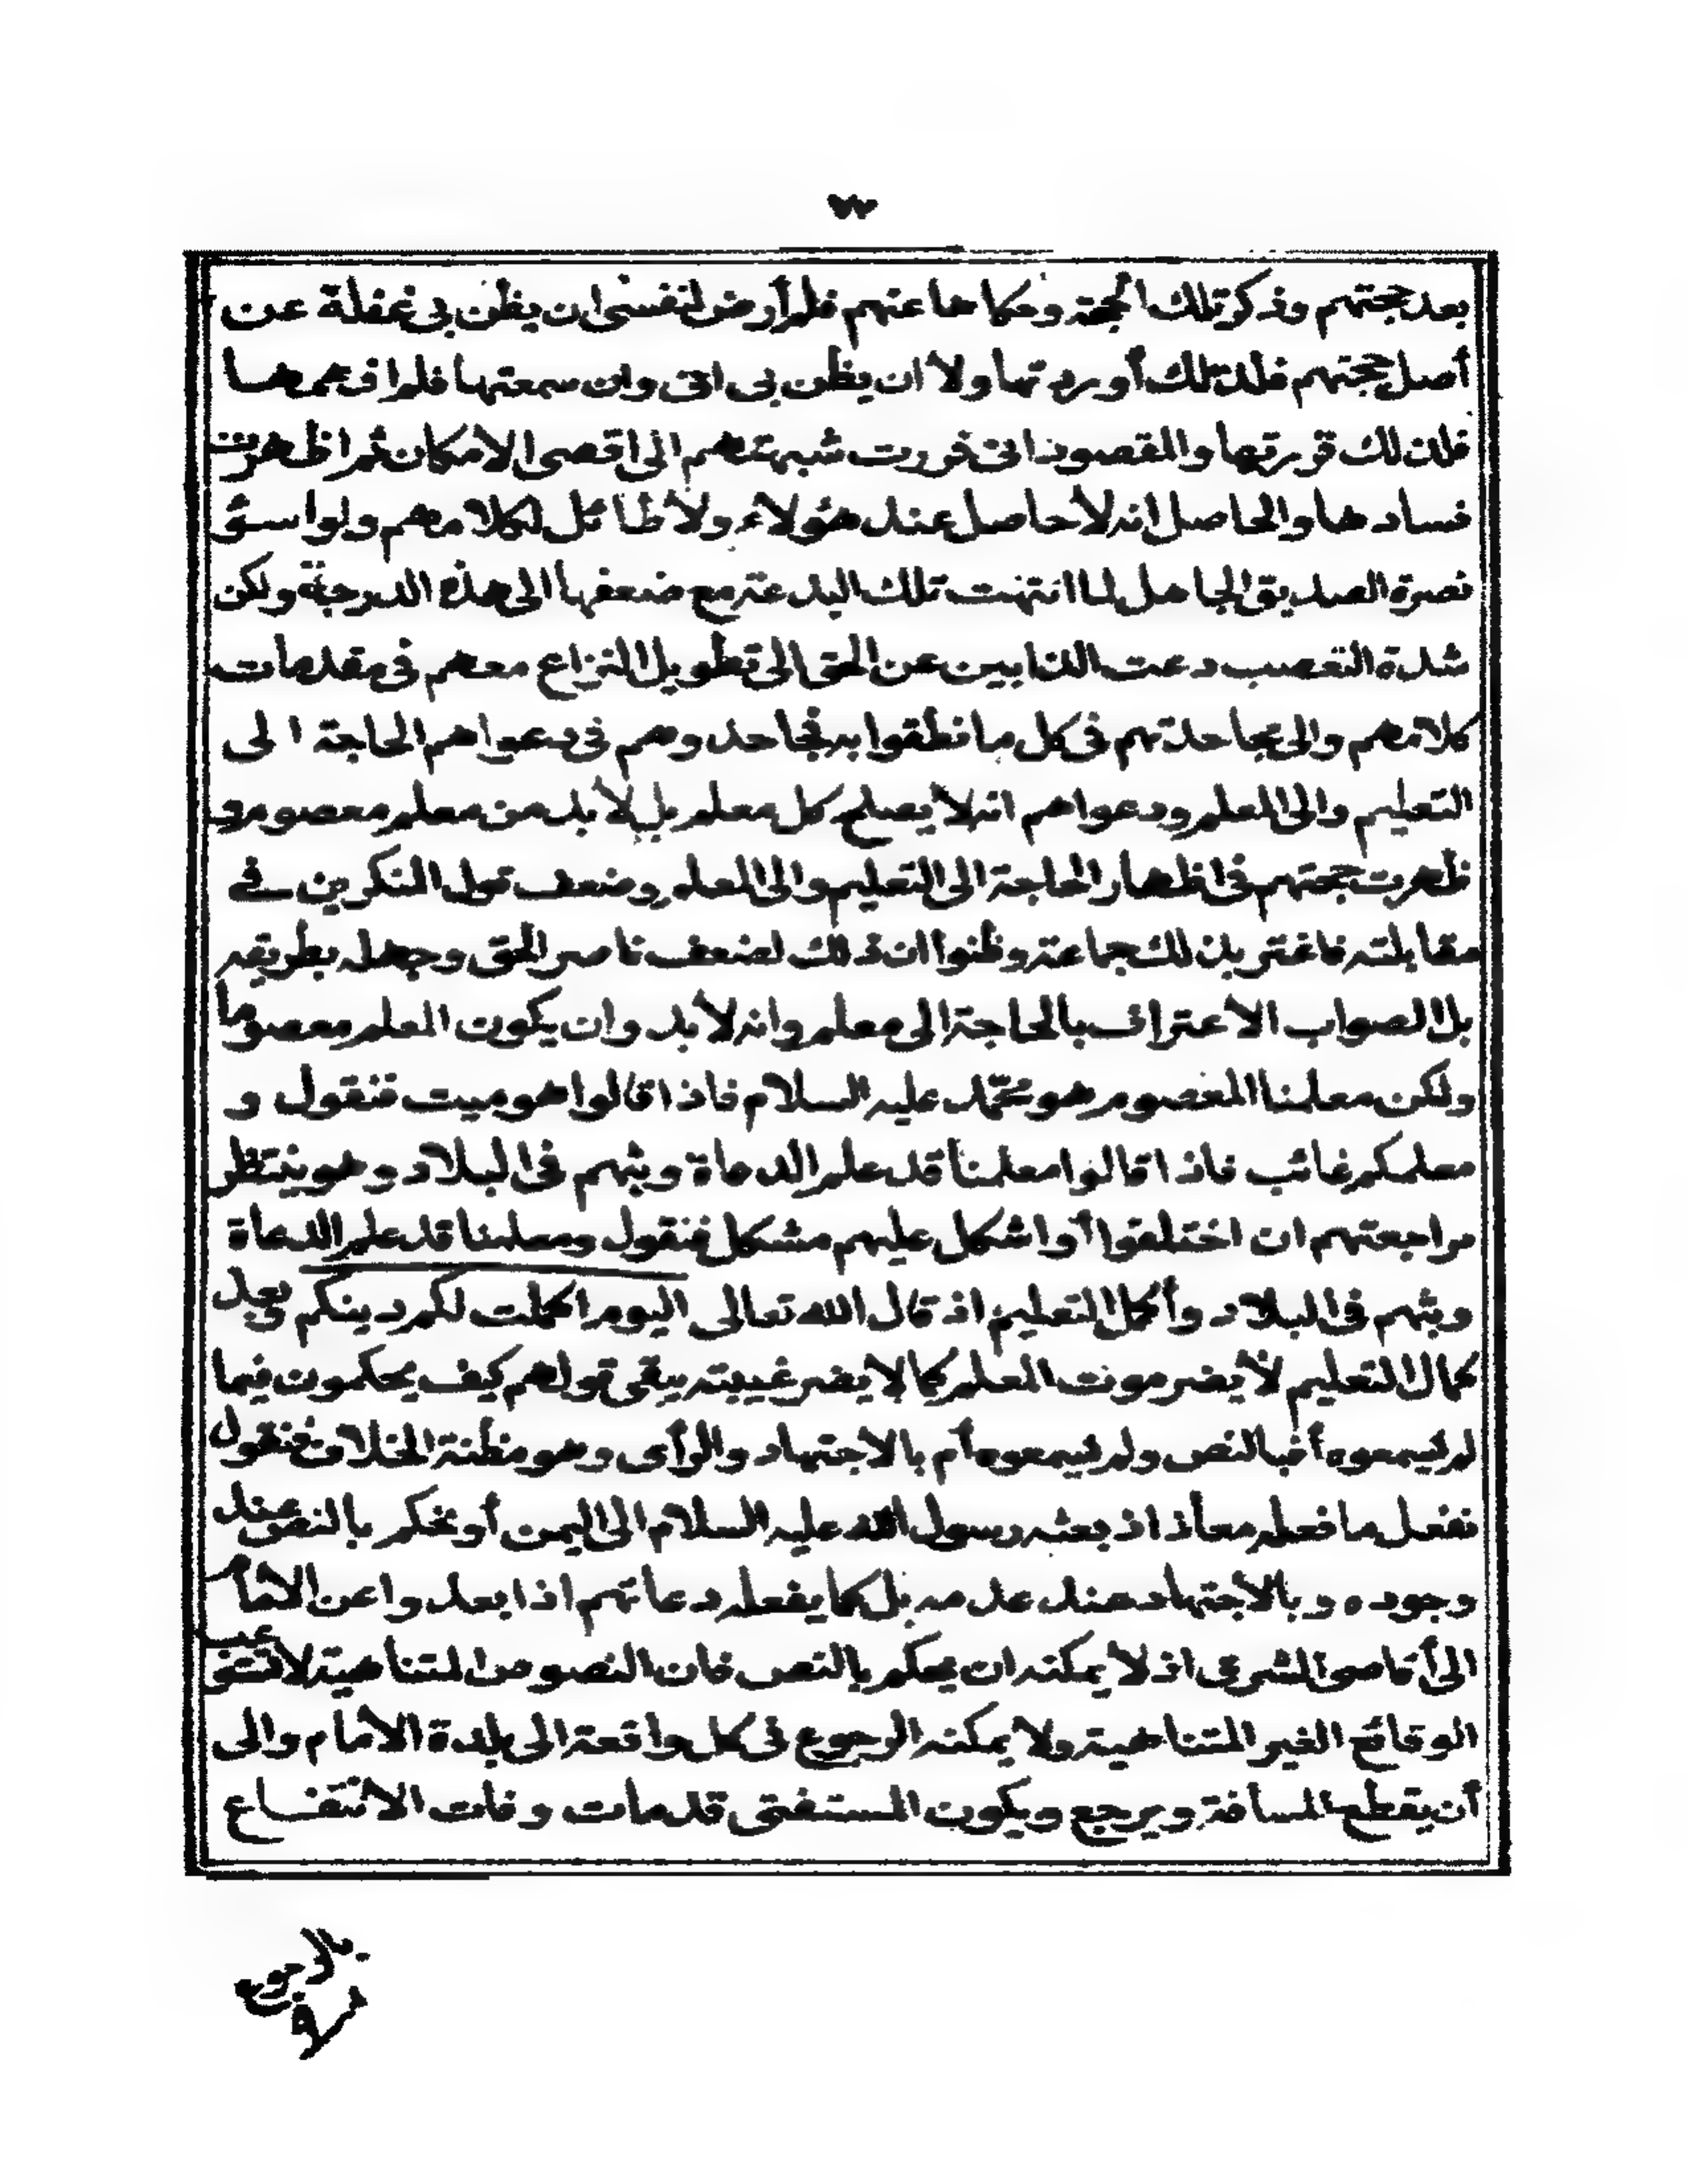 ٧٧
بعد حجتهم وذكر تلك الحجة وحكاها عنهم فلم أرض لنفسى ان يظن بى غفلة عن
أصل حجتهم فلذلك أوردتها ولا ان يظن بى انى وان سمعتها فلم افهمها
فلذلك قررتها والمقصود انى قررت شبهتهم الى اقصى الامكان ثم اظهرت
فسادها والحاصل انه لا حاصل عند هؤلاء ولا طائل لكلامهم ولولا سوء
نصرة الصديق الجاهل لما انتهت تلك البدعة مع ضعفها الى هذه الدرجة ولكن
شدة التعصب دعت الذابين عن الحق الى تطويل النزاع معهم فى مقدمات
كلامهم والى مجاحدتهم فى كل ما نطقوا به فجاحدوهم فى دعواهم الحاجة الى
التعليم والى المعلم ودعواهم انه لا يصلح كل معلم بل لا بد من معلم معصوم و
ظهرت حجتهم فى اظهار الحاجة الى التعليم والى المعلم وضعف قول المنكرين فے
مقابلته فاغتر بذلك جماعة وظنوا ان ذلك لضعف ناصر الحق وجهله بطريقه
بل الصواب الاعتراف بالحاجة الى معلم وانه لا بد وان يكون المعلم معصوما
ولكن معلمنا المعصوم هو محمّد عليه السلام فاذا قالوا هو ميت فنقول و
معلمكم غائب فاذا قالوا معلمنا قد علم الدعاة وبثهم فى البلاد وهو ينتظر
مراجعتهم ان اختلفوا أو اشكل عليهم مشكل فنقول ومعلمنا قد علم الدعاة
وبثهم فى البلاد وأكمل التعليم اذ قال الله تعالى اليوم اكملت لكم دينكم وبعد
كمال التعليم لا يضر موت المعلم كما لا يضر غيبته يبقى قولهم كيف يحكمون فيما
لم يسمعوه أ فبالنص ولم يسمعوه أم بالاجتهاد والرأى وهو مظنة الخلاف فنقول
نفعل ما فعله معاذ اذ بعثه رسول الله عليه السلام الى اليمن أو نحكم بالنص عند
وجوده وبالاجتهاد عند عدمه بل كما يفعله دعاتهم اذا بعدوا عن الامام
الى أقاصى الشرعى اذ لا يمكنه ان يحكم بالنص فان النصوص المتناهية لا تستوعب
الوقائع الغير المتناهية ولا يمكنه الرجوع فى كل واقعة الى بلدة الامام والى
أن يقطع المسافة ويرجع ويكون المستفتى قد مات وفات الانتفاع
بالرجوع